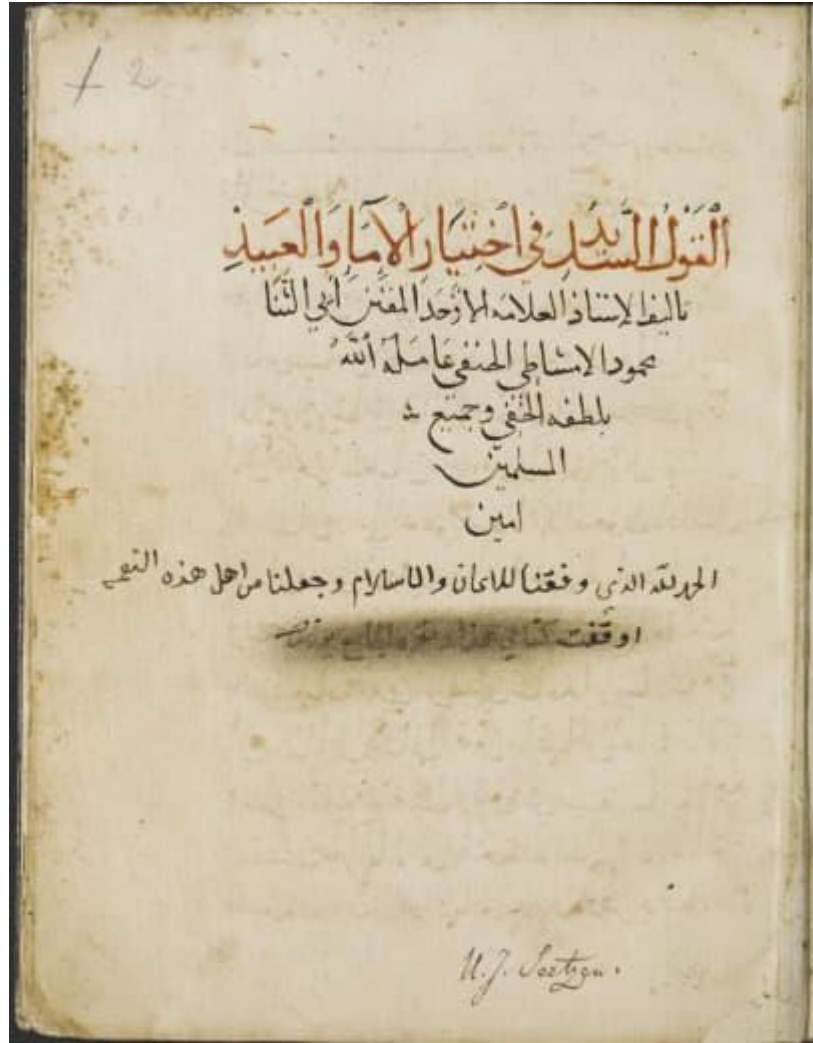 2
القول السديد في اختيار الاما والعبيد
تاليف الاستاذ العلامه الاوحد المفنن أبي الثنا
محمود الامشاطي الحنفي عامله ألله
بلطفه الخفي وجميع
المسلمين
امين
الحمد لله الذي وفقنا للايمان والاسلام وجعلنا من اهل هذه
اوقفت كتابي هذا
U. J. Seetzen.